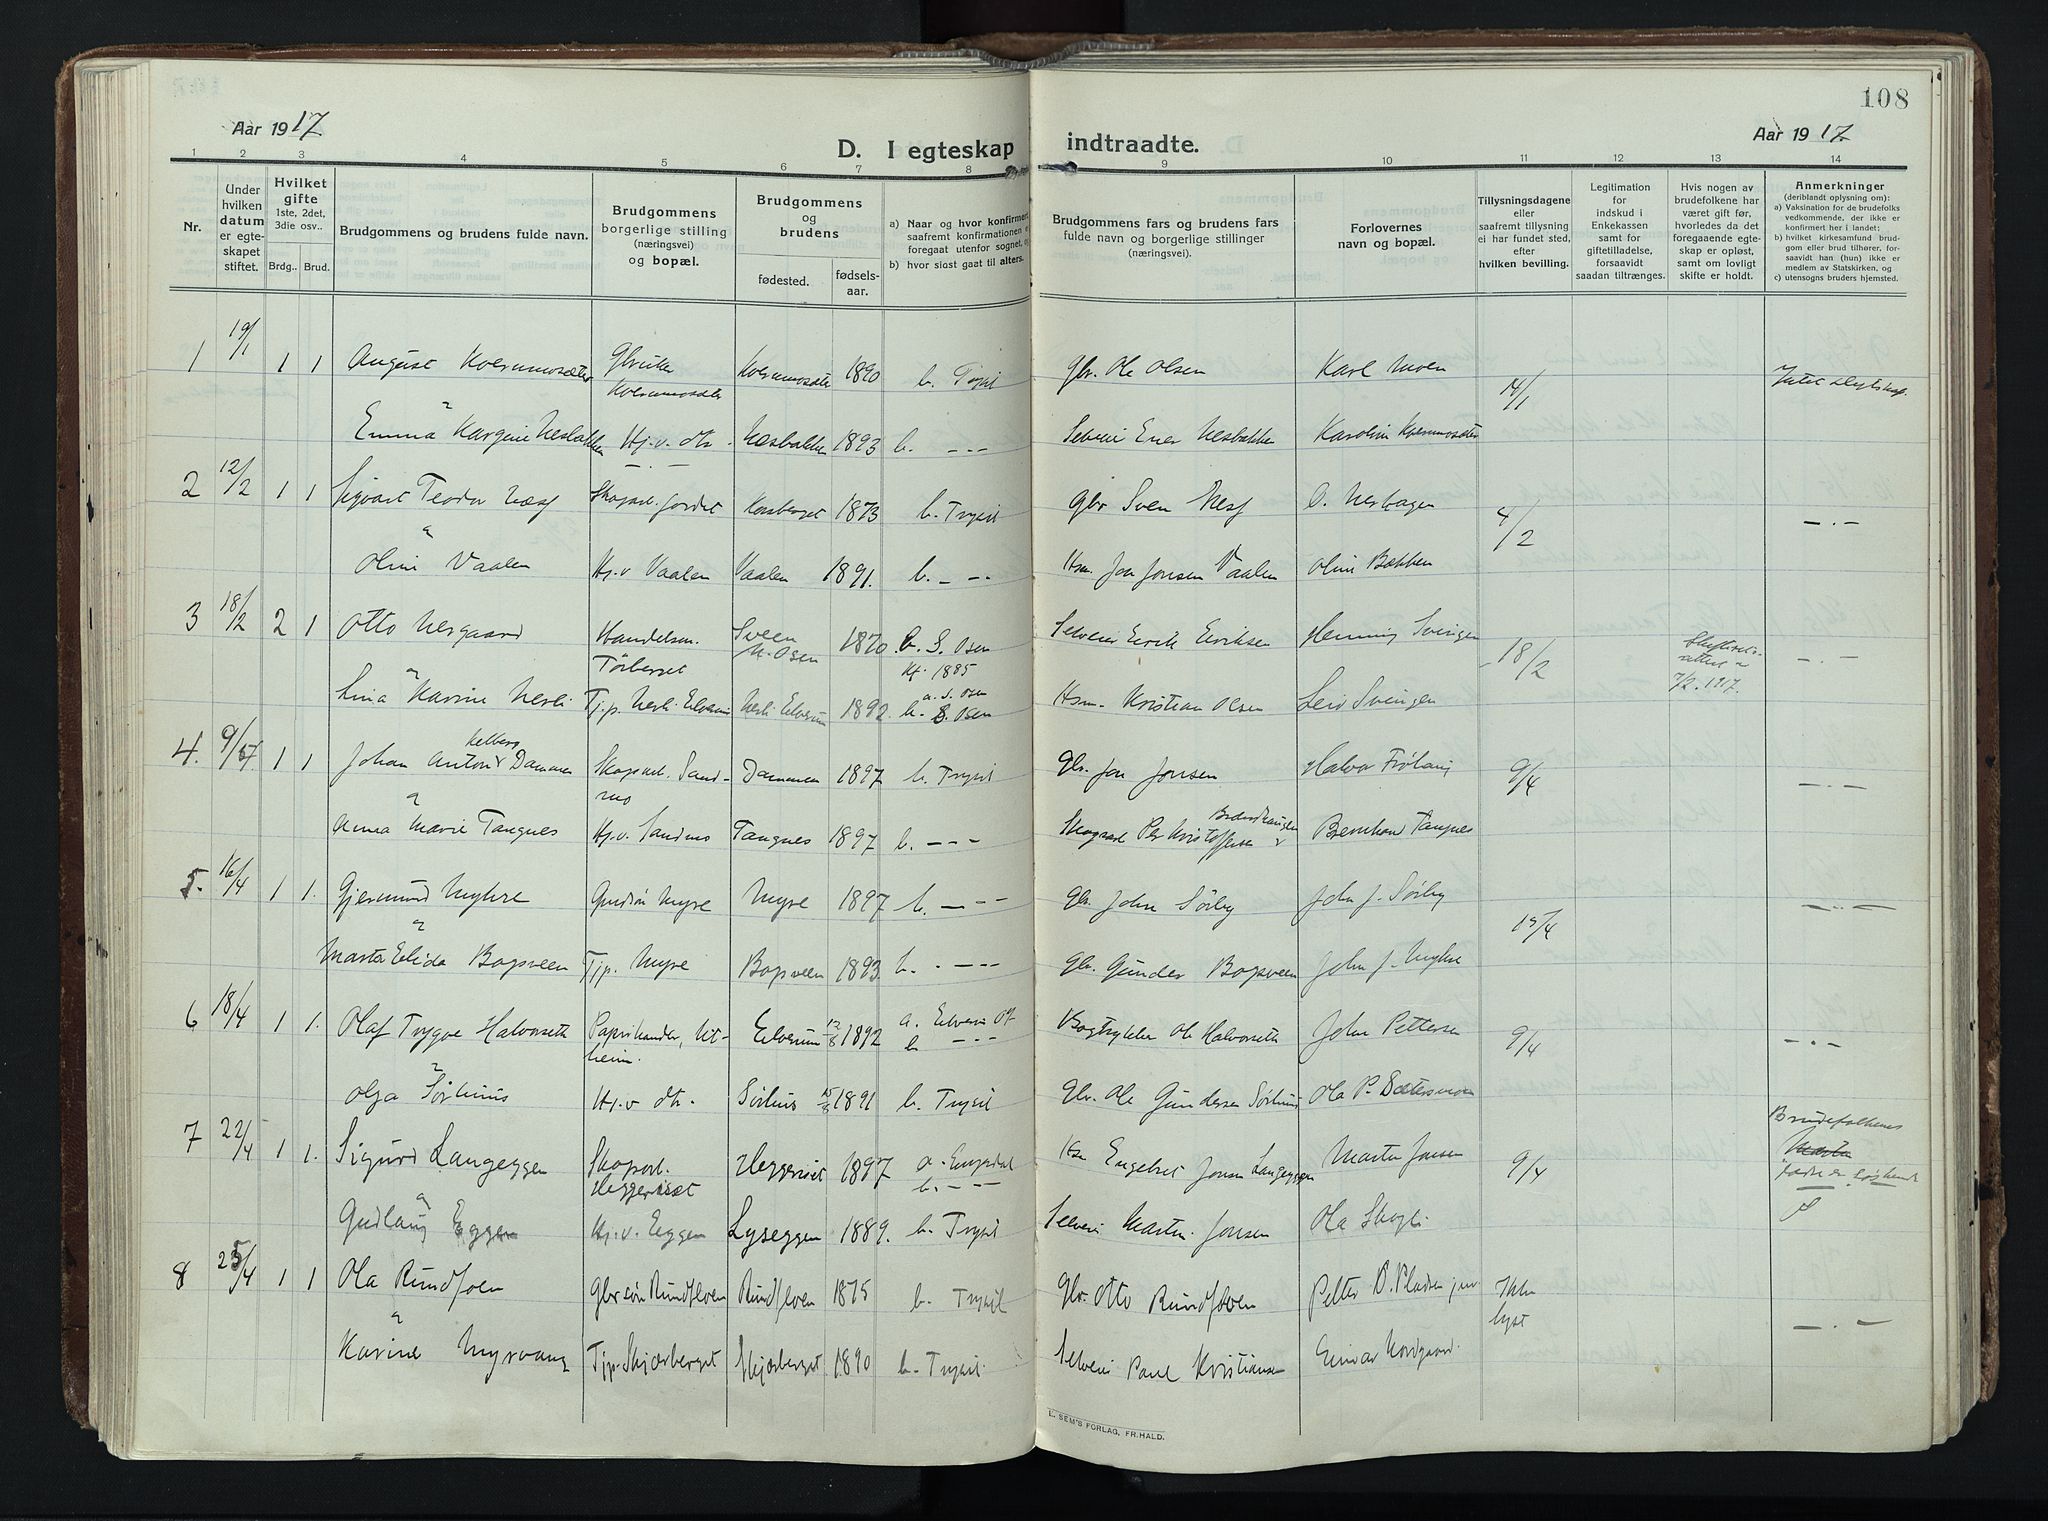 108
Aar 1917
Aar 1917
D. I egteskap indtraadte.
1 2 3 4 5 6 7 8 9 10 11 12 13 14
Nr.
Under hvilken datum er egteskapet stiftet.
Hvilket gifte
1ste, 2det, 3die osv..
Brdg.. Brud.
Brudgommens og brudens fulde navn.
Brudgommens borgerlige stilling (næringsvei) og bopæl.
Brudgommens og brudens
fødested.
fødsels-aar.
a) Naar og hvor konfirmert, saafremt konfirmationen er foregaat utenfor sognet, og
b) hvor sidst gaat til alters.
Brudgommens fars og brudens fars
fulde navn og borgerlige stillinger
(næringsvei).
Forlovernes
navn og bopæl.
Tillysningsdagene
eller
saafremt tillysning
ei har fundet sted,
efter
hvilken bevilling.
Legitimation
for
indskud i
Enkekassen
samt for
giftetilladelse,
forsaavidt
saadan tiltrænges.
Hvis nogen av
brudefolkene har
været gift før,
hvorledes da det
foregaaende egte-
skap er opløst,
samt om lovligt
skifte er holdt.
Anmerkninger
(deriblandt oplysning om):
a) Vaksination for de brudefolks
vedkommende, der ikke er
konfirmert her i landet;
b) hvilket kirkesamfund brud-
gom eller brud tilhører, for-
saavidt han (hun) ikke er
medlem av Statskirken, og
c) utensogns bruders hjemsted.
1 19/1 1 1 August Kolrumosæter Gbruker Kolrumosæter 1890 b. Trysil Gbr. Ole Olsen Karl Moen 14/1 Intet slegtskap.
Emma Kargine Nesbakken Hj.v. dtr. Næsbakken 1893 b. — Selveier Nesbakken Karoline
2 12/2 1 1 Sigvart Teodor Næss Skogsarb. Jordet 1873 b. Trysil Gbr Sven Ness O. Neshagen 4/2 — . —
Oline Vaalen Hj.v Vaalen Vaalen 1891. b. - - Hsm. Jon Jonsen Vaalen Oline Bækken
3 18/2 2 1 Otto Nergaard Handelsm. Törberget Sveen N. Osen 1870 b. S. Osen Selveier Eirik Eriksen Henning Svingen 18/2 7/2. 1917. — . —
Kf. 1885
Lina Karine Nerli Tj.p. Nerli Elverum Nerli Elverum 1892. a. S. Osen b. S. Osen Hsm. Kristian Olsen Leiv Svingen
4. 9/4 1 1 Johan Anton Kelberg Dammen Skogsarb. Sandmo Dammen 1897 b. Trysil Gbr. Jon Jonsen Halvor Frölang 9/4 — . —
Anna Marie Tangnes Hj.v. Sandmo Tangnes 1897 b. — - - Skogsarb Per Kristoffersen Bernhard Tangnes
5. 16/4 1 1. Gjermund Myhre Myre Myre 1897 b. — - - Gbr. John Sörby John J. Sörby 15/4 — . —
Marta Elida Bogsveen Tjp. Myre Bogsveen 1893. b. - — - Gbr. Gunder Bogsveen John J. Myhre
6 18/4 1 1. Olaf Trygve Halvorseth Papirhandler, Utheim. Elverum 12/8 1892 a. Elverum 07 b. - - - Bogtrykker Ole Halvorseth John Pettersen 9/4 — . —
Olga Sörhuus Hj.v dtr. Sörhus 15/8 1891 b. Trysil Gbr. Ole Gundersen Sörhuus Ola P. Sætermoen
7 22/4 1 1. Sigurd Langeggen Skogsarb. Heggeriset Heggeriset 1897 a. Engerdal b. - - Hsm Engebret Jonsen Langeggen Martin Jonsen 9/4 Brudefolkenes fædre er söskende
Gudlaug Eggen Hj.v. Eggen Lyseggen 1889. b. Trysil Selveier Martin Jonsen Ola Skogli
8 25/4 1 1 Ola Rundfloen Gbrsön Rundfloen Rundfloen 1875 b. Trysil Gbr. Otto Rundfloen Petter O. Pladsen jun. lyst — . —
Karine Myrvang Tjp. Skjærberget Skjærberget 1890 b. Trysil. Selveier Paul Kristiansen Einar Nordgaard.
L. SEM'S FORLAG, FR.HALD.